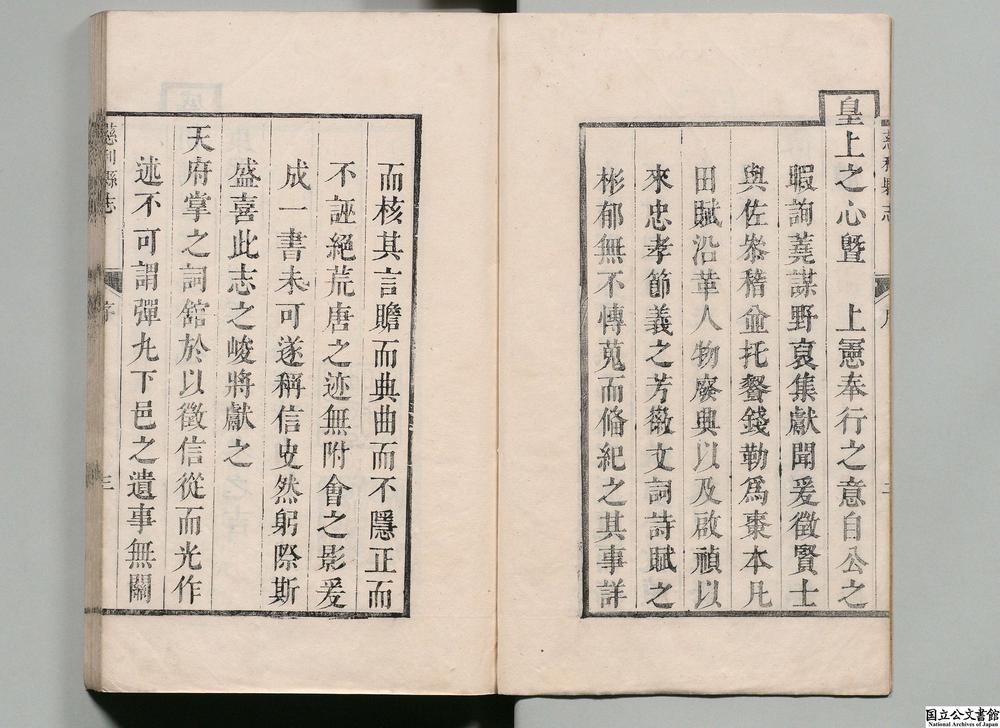 慈利縣志
序
二
皇上之心暨　上憲奉行之意自公之
暇詢蕘謀野裒集獻聞爰徵賢士
與佐叅稽㑒托餐錢勒為棗本凡
田賦沿革人物廢興以及啟禎以
來忠孝節義之芳徽文詞詩賦之
彬郁無不慱蒐而脩紀之其事詳
而核其言贍而典曲而不隱正而
不誣絕荒唐之迹無附會之影爰
成一書未可遂稱信史然躬際斯
盛喜此志之峻將獻之
天府掌之詞舘於以徵信從而光作
述不可謂彈丸下邑之遺事無關
慈利縣志
序
三
国立公文書館
National Archives of Japan